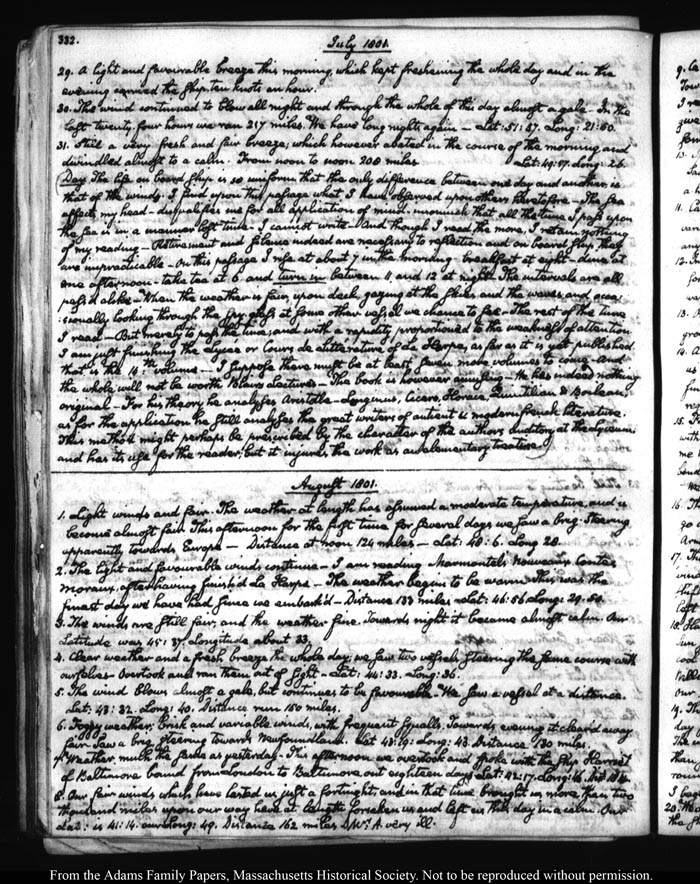 332.
July 1801.
29. A light and favourable breeze this morning, which kept freshening the whole day and in the
evening carried the ship ten knots an hour.
30. The wind continued to blow all night and through the whole of this day almost a gale. In the
last twenty four hours we ran 217 miles. We have long nights again — Lat: 51: 57. Long: 21: 50.
31. Still a very fresh and fair breeze; which however abated in the course of the morning, and
dwindled almost to a calm. From noon to noon 208 miles Lat: 49: 57. Long: 26.
Day. The life on board ship is so uniform that the only difference between one day and another, is
that of the winds. I find upon this passage what I have observed upon others heretofore — The sea
affects my head — disqualifies me for all application of mind; insomuch that all the time I pass upon
the sea is in a manner lost time. I cannot write. And though I read the more, I retain nothing
of my reading — Retirement and silence indeed are necessary to reflection and on board ship, they
are impracticable. On this passage I rise at about 7 in the morning — breakfast at eight — dine at
one afternoon — take tea at 6. and turn in between 11. and 12 at night. The intervals are all
pass'd alike — When the weather is fair, upon deck, gazing at the skies and the waves, and occa-
sionally looking through the spy-glass at some other vessel we chance to see — The rest of the time
I read — But merely to pass the time; and with a rapidity proportioned to the weakness of attention.
I am just finishing the Lycée or Cours de Litterature of La Harpe, as far as it is yet published.
that is the 14th volume — I suppose there must be at least seven more volumes to come — And
the whole will not be worth Blair's Lectures — The book is however amusing — He has indeed nothing
original — For his theory he analyses Aristotle — Longinus, Cicero, Horace, Quintilian & Boileau;
as for the application he still analyses the great writers of antient & modern french literature.
This method might perhaps be prescribed by the character of the author's auditory at the Lyceum
and has its use for the reader; but it injures the work as an elementary treatise.
August 1801.
1. Light winds and fair. The weather at length has assumed a moderate temperature, and is
become almost fair. This afternoon for the first time for several days we saw a brig. steering
apparently towards Europe — Distance at noon 124 miles — Lat: 48: 6. Long 28.
2. The light and favourable winds continue — I am reading Marmontel's Nouveaux Contes
moraux, after having finish'd La Harpe — The weather begins to be warm. This was the
finest day we have had since we embark'd — Distance 133 miles — Lat: 46: 56. Long: 29: 50.
3. The winds are still fair, and the weather fine. Towards night it became almost calm. Our
Latitude was 45: 37. Longitude about 33.
4. Clear weather and a fresh breeze the whole day; we saw two vessels, steering the same course with
ourselves. Overtook and ran them out of sight. Lat: 44: 33. Long: 36.
5. The wind blows almost a gale, but continues to be favourable. We saw a vessel at a distance.
Lat: 43: 32. Long: 40. Distance run 180 miles.
6. Foggy weather; brisk and variable winds, with frequent squalls. Towards evening it clear'd away
fair. Saw a brig steering towards Newfoundland. Lat 43: 9: Long: 43. Distance 130 miles.
7. Weather much the same as yesterday. This afternoon we overtook and spoke with the ship Harriot
of Baltimore bound from London to Baltimore, out eighteen days. Lat: 42: 17. Long: 46.
8. Our fair winds, which have lasted us just a fortnight, and in that time brought us more than two
thousand miles upon our way have at length forsaken us and left us this day in a calm. Our
Lat: is 41: 14. our Long: 49. Distance 162 miles. Mrs. A. very ill.
From the Adams Family Papers, Massachusetts Historical Society. Not to be reproduced without permission.